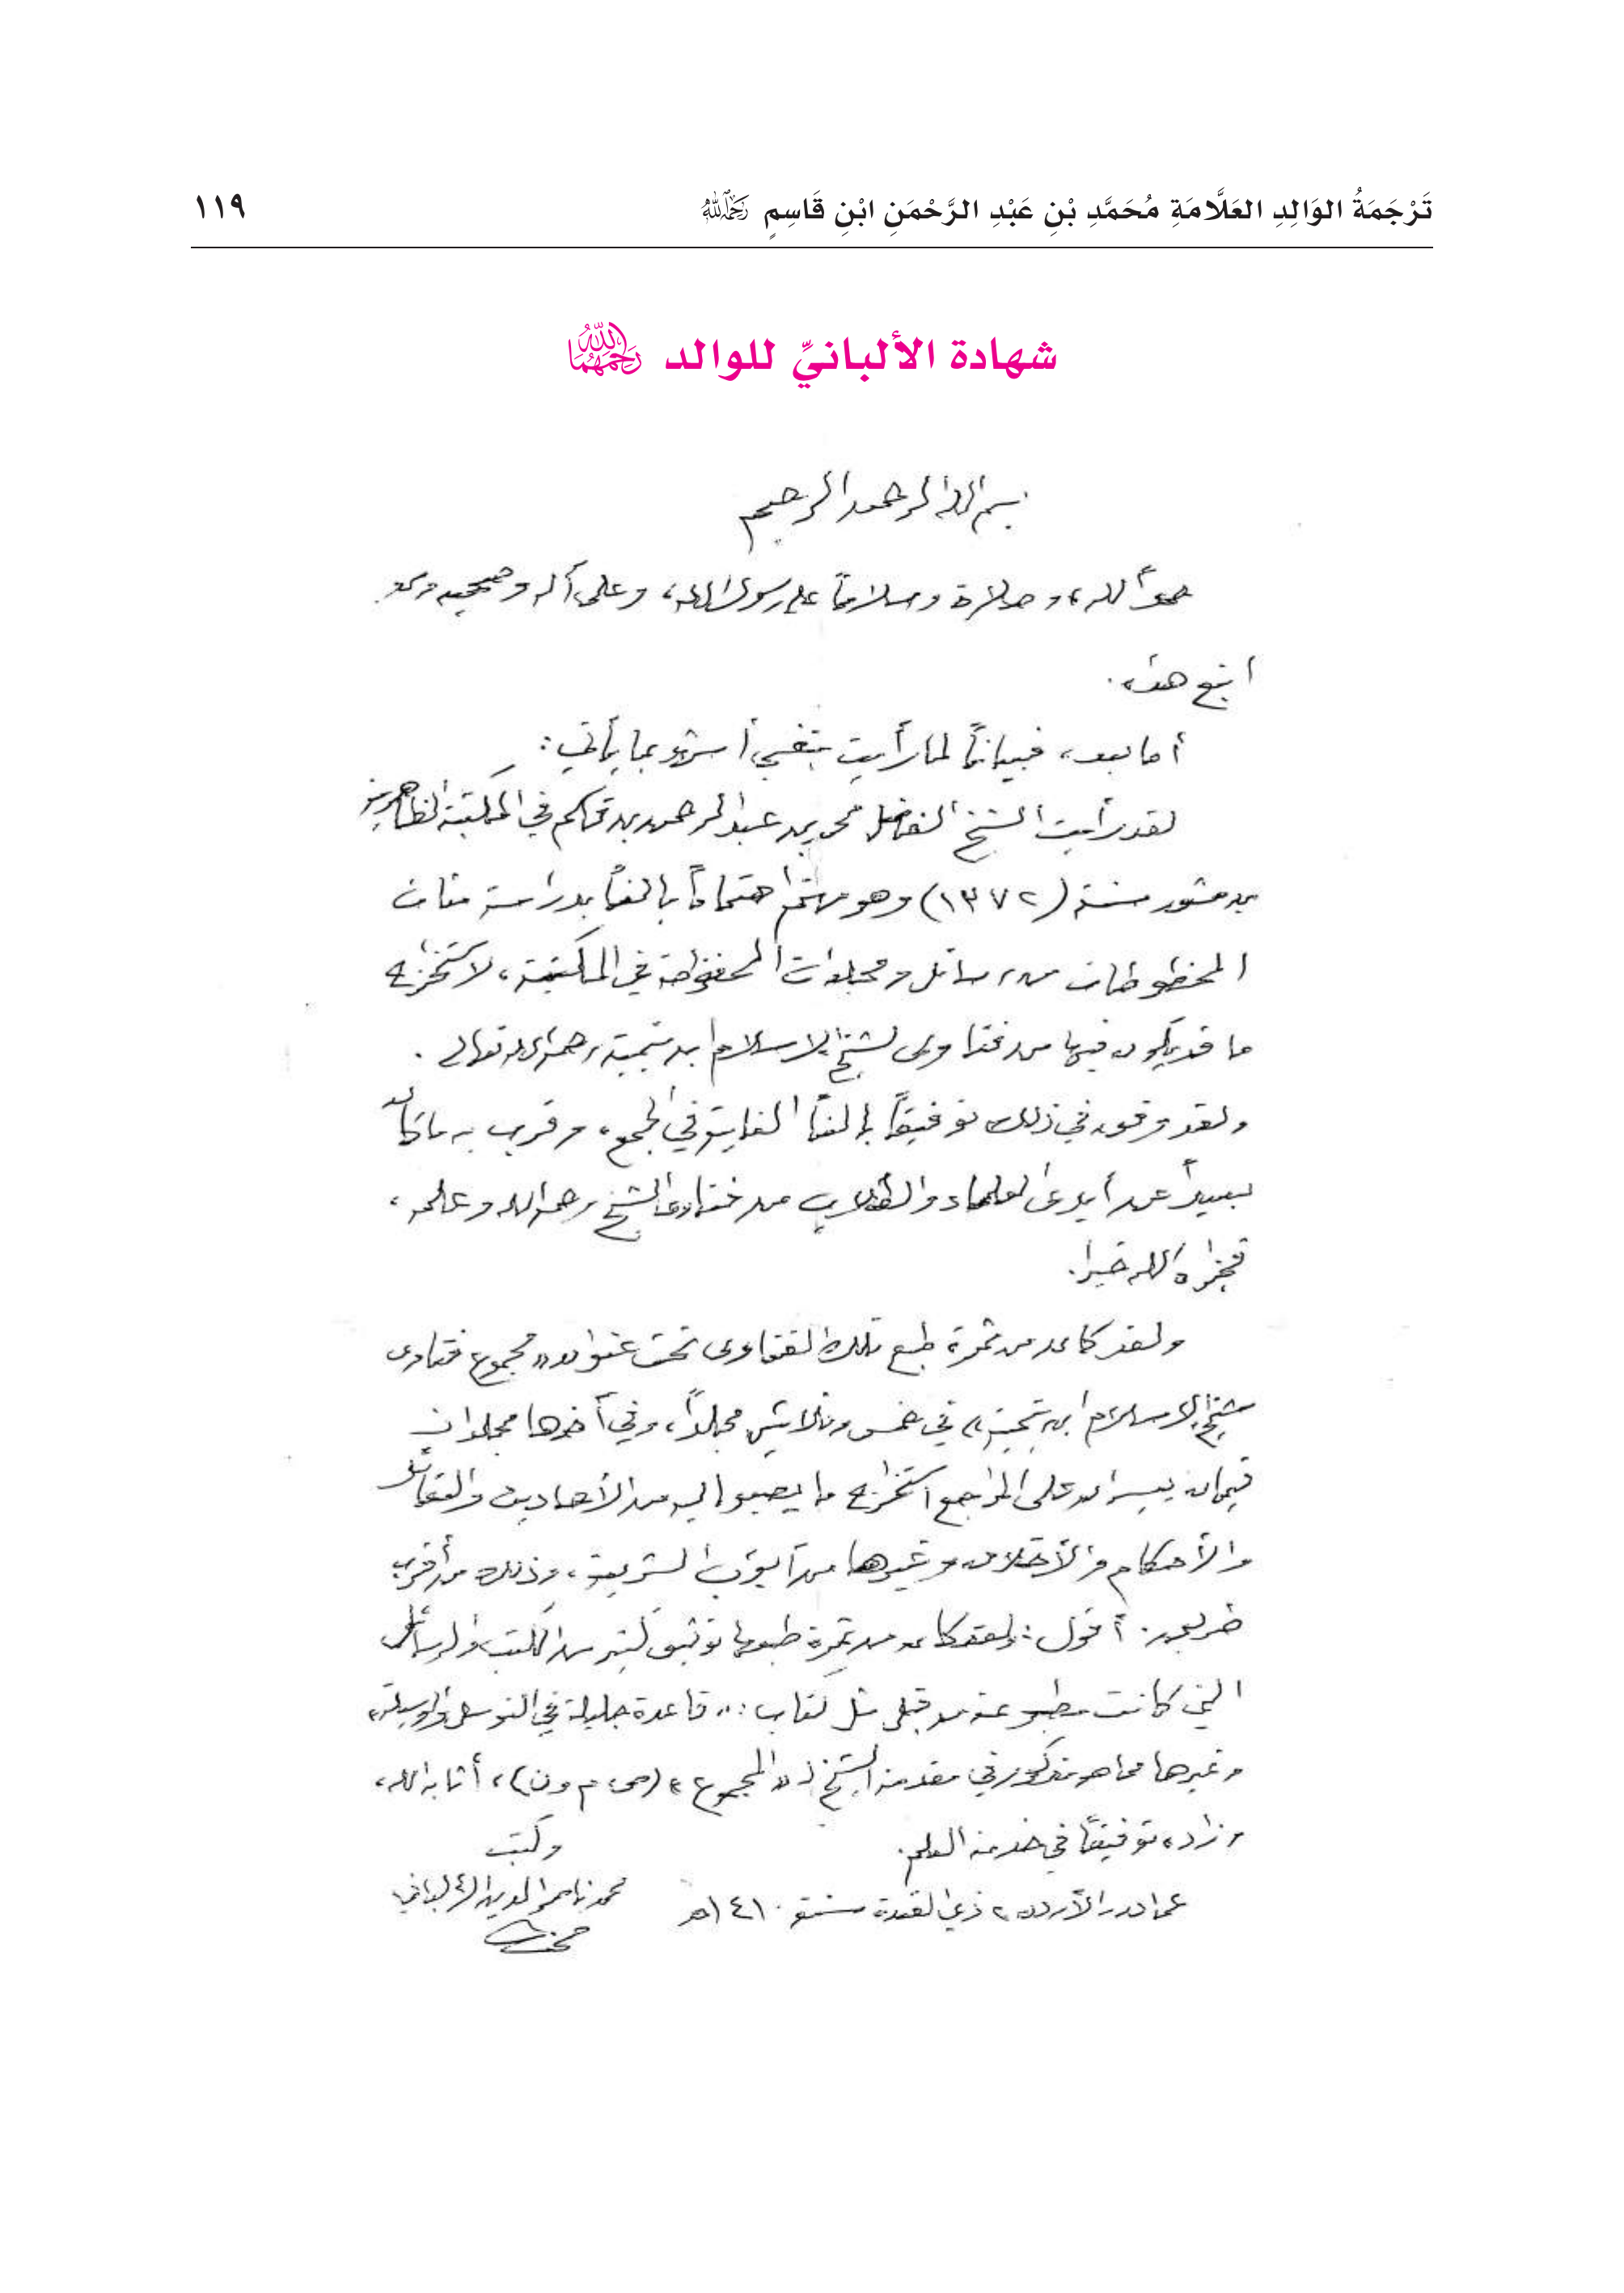 تَرْجَمَةُ الوَالِدِ العَلَّامَةِ مُحَمَّدِ بْنِ عَبْدِ الرَّحْمَنِ ابْنِ قَاسِمٍ رَحِمَهُ اللَّهُ ١١٩
شهادة الألبانيِّ للوالد رَحِمَهُمَا اللَّهُ
بسم الله الرحمن الرحيم
حمداً لله، وصلاة وسلامًا على رسول الله، وعلى آله وصحبه ومن
اتبع هداه.
أما بعد، فبيانًا لما رأيت بنفسي أشهد بما يأتي:
لقد رأيت الشيخ الفاضل محمد بن عبد الرحمن بن قاسم في المكتبة الظاهرية
بدمشق سنة (١٣٧٢) وهو مهتم اهتمامًا بالغًا بدراسة مئات
المخطوطات من رسائل ومجلدات المحفوظة في المكتبة، لاستخراج
ما قد يكون فيها من فتاوى لشيخ الاسلام ابن تيمية رحمه الله تعالى.
ولقد وفق في ذلك توفيقًا بالغًا الغاية في الجمع، وقرب به ما كان
بعيداً عن أيدي العلماء والطلاب من فتاوى الشيخ رحمه الله وعلمه،
فجزاه الله خيرا.
ولقد كان من ثمرة طبع تلك الفتاوى تحت عنوان «مجموع فتاوى
شيخ الاسلام ابن تيمية» في خمس وثلاثين مجلداً، وفي آخرها مجلدان
قيمان ييسران على المراجع استخراج ما يصبو إليه من الأحاديث والعقائد
والأحكام والأخلاق وغيرها من أبواب الشريعة، وذلك من أقرب
طريق. أقول: ولقد كان من ثمرة طبعها توثيق كثير من الكتب والرسائل
التي كانت مطبوعة من قبل مثل كتاب: «قاعدة جليلة في التوسل والوسيلة»
وغيرها مما هو مذكور في مقدمة الشيخ لـ «المجموع» (ص م و ن)، أثابه الله،
وزاده توفيقًا في خدمة العلم.
وكتب
محمد ناصر الدين الألباني
عمان الأردن ٢ ذي القعدة سنة ١٤١٠هـ